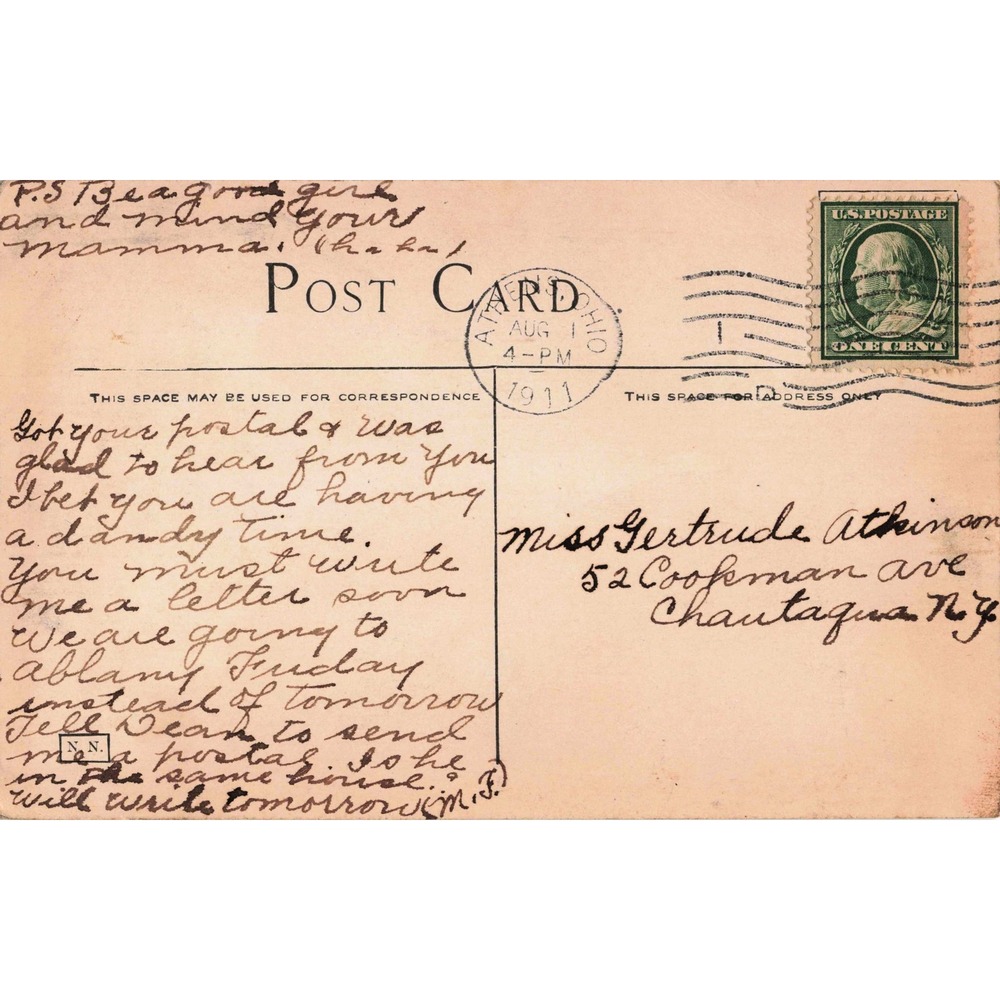 P.S Be a good girl
and mind your
mamma. (ha ha)
POST CARD
ATHENS, OHIO
AUG 1
4-PM
1911
U.S. POSTAGE
ONE CENT
THIS SPACE MAY BE USED FOR CORRESPONDENCE
THIS SPACE FOR ADDRESS ONLY
Got your postal & was
glad to hear from you
I bet you are having
a dandy time.
You must write
me a letter soon
We are going to
Ablany Friday
instead of tomorrow
Tell Dean to send
me a postal. Is he
in the same house?
Will write tomorrow (M.F.)
N.N.
Miss Gertrude Atkinson
52 Cookman ave
Chautaqua N.Y.